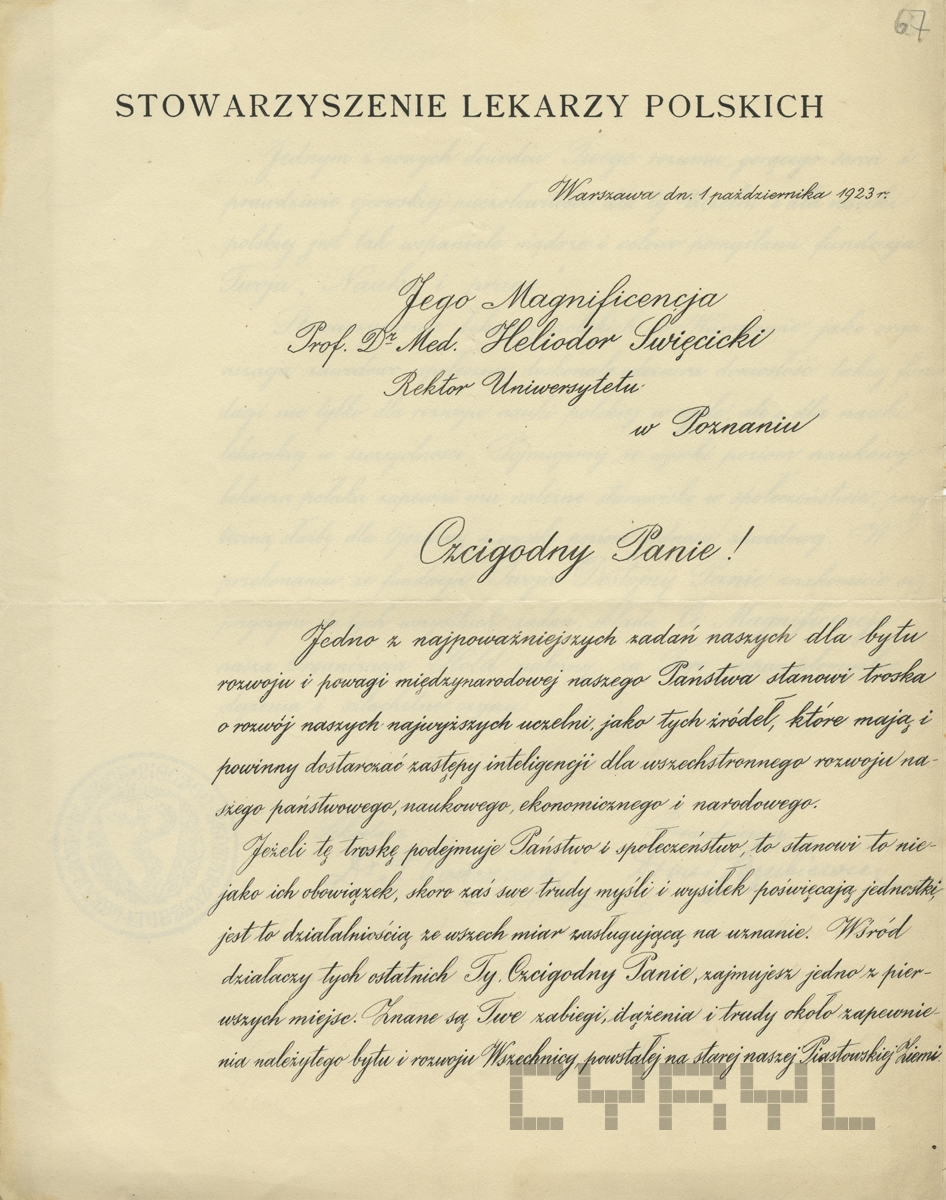 67
STOWARZYSZENIE LEKARZY POLSKICH
Warszawa dn. 1 października 1923 r.
Jego Magnificencja
Prof. Dr Med. Heliodor Swięcicki
Rektor Uniwersytetu
w Poznaniu
Czcigodny Panie!
Jedno z najpoważniejszych zadań naszych dla bytu
rozwoju i powagi międzynarodowej naszego Państwa stanowi troska
o rozwój naszych najwyższych uczelni, jako tych źródeł, które mają i
powinny dostarczać zastępy inteligencji dla wszechstronnego rozwoju na-
szego państwowego, naukowego, ekonomicznego i narodowego.
Jeżeli tę troskę podejmuje Państwo i społeczeństwo, to stanowi to nie-
jako ich obowiązek, skoro zaś swe trudy myśli i wysiłek poświęcają jednostki,
jest to działalnością ze wszech miar zasługującą na uznanie. Wśród
działaczy tych ostatnich Ty, Czcigodny Panie, zajmujesz jedno z pier-
wszych miejsc. Znane są Twe zabiegi, dążenia i trudy około zapewnie-
nia należytego bytu i rozwoju Wszechnicy, powstałej na starej naszej Piastowskiej Ziemi
CYRYL